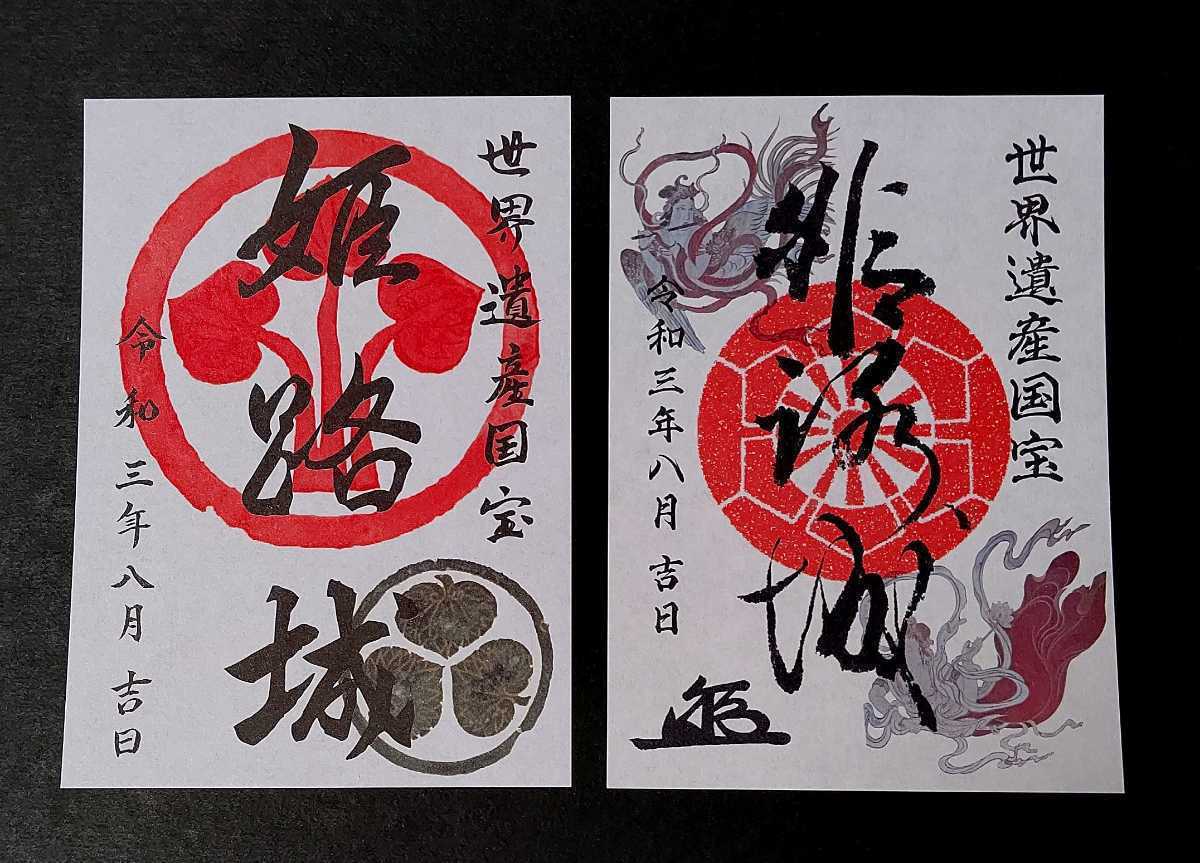 世界遺産国宝
姫路城
令和三年八月吉日
世界遺産国宝
令和三年八月吉日